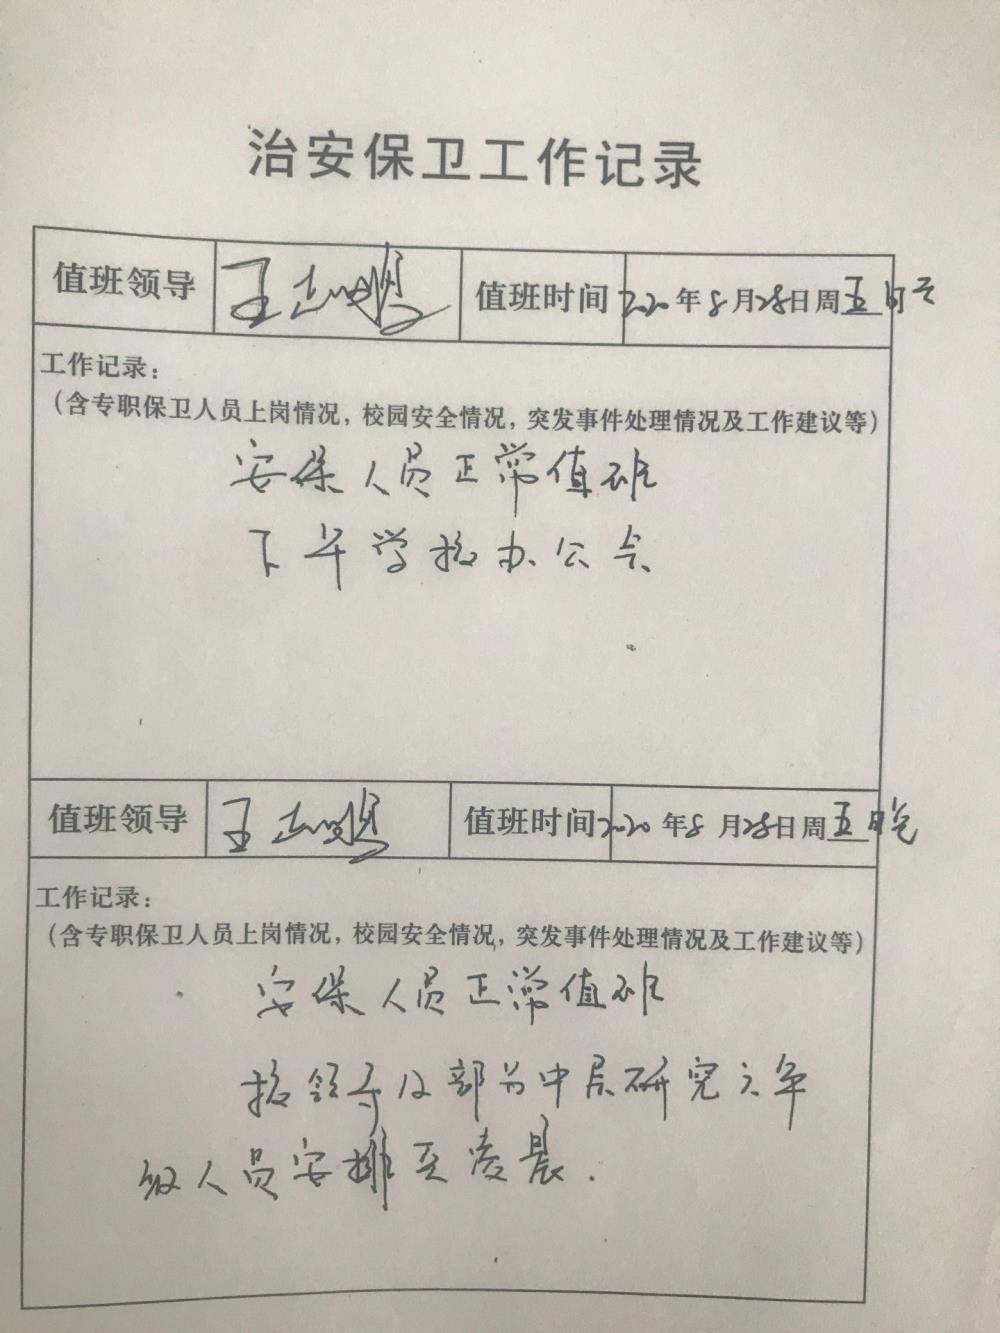 治安保卫工作记录
值班领导 王 值班时间 2020年8月28日周五白天
工作记录：
（含专职保卫人员上岗情况，校园安全情况，突发事件处理情况及工作建议等）
安保人员正常值班
下午学校办公会
值班领导 王 值班时间 2020年8月28日周五晚
工作记录：
（含专职保卫人员上岗情况，校园安全情况，突发事件处理情况及工作建议等）
安保人员正常值班
校领导及部分中层研究六年
级人员安排至凌晨.